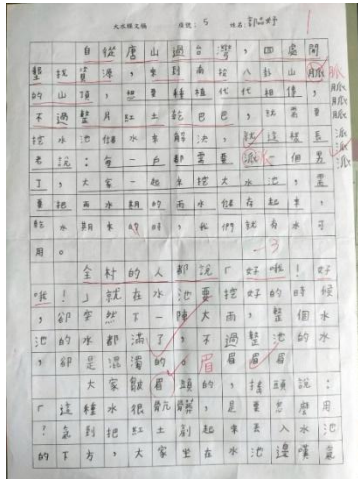 大水爆文稿 座號：5 姓名：郭品妤
自從唐山過台灣，四處開
墾找資源，來到南投八卦山脈
的山頂，想要種植代代相傳，
不過整月紅土乾巴巴，就需要
挖水池儲水來解決，就這樣長
老說：每一戶都需要派一個男
丁，大家一起來挖大水池，需
要把雨水期的雨水儲在起來，
乾水期來的時，我們就有水可
用。
全村的人都說「好啦！好
啦！」就在水池要挖好的時候
，卻突然了一陣大雨，整個水
池的水都滿了，不過整池的水
，卻是混濁的。眉眉眉
大家皺眉頭的，搖頭說：
「這種水很骯髒，是要怎麼用
！氣到把紅土剷起來丟入水池
的下方，大家坐在水池邊嘆氣
脈
脈
脈
派
派
派
-3